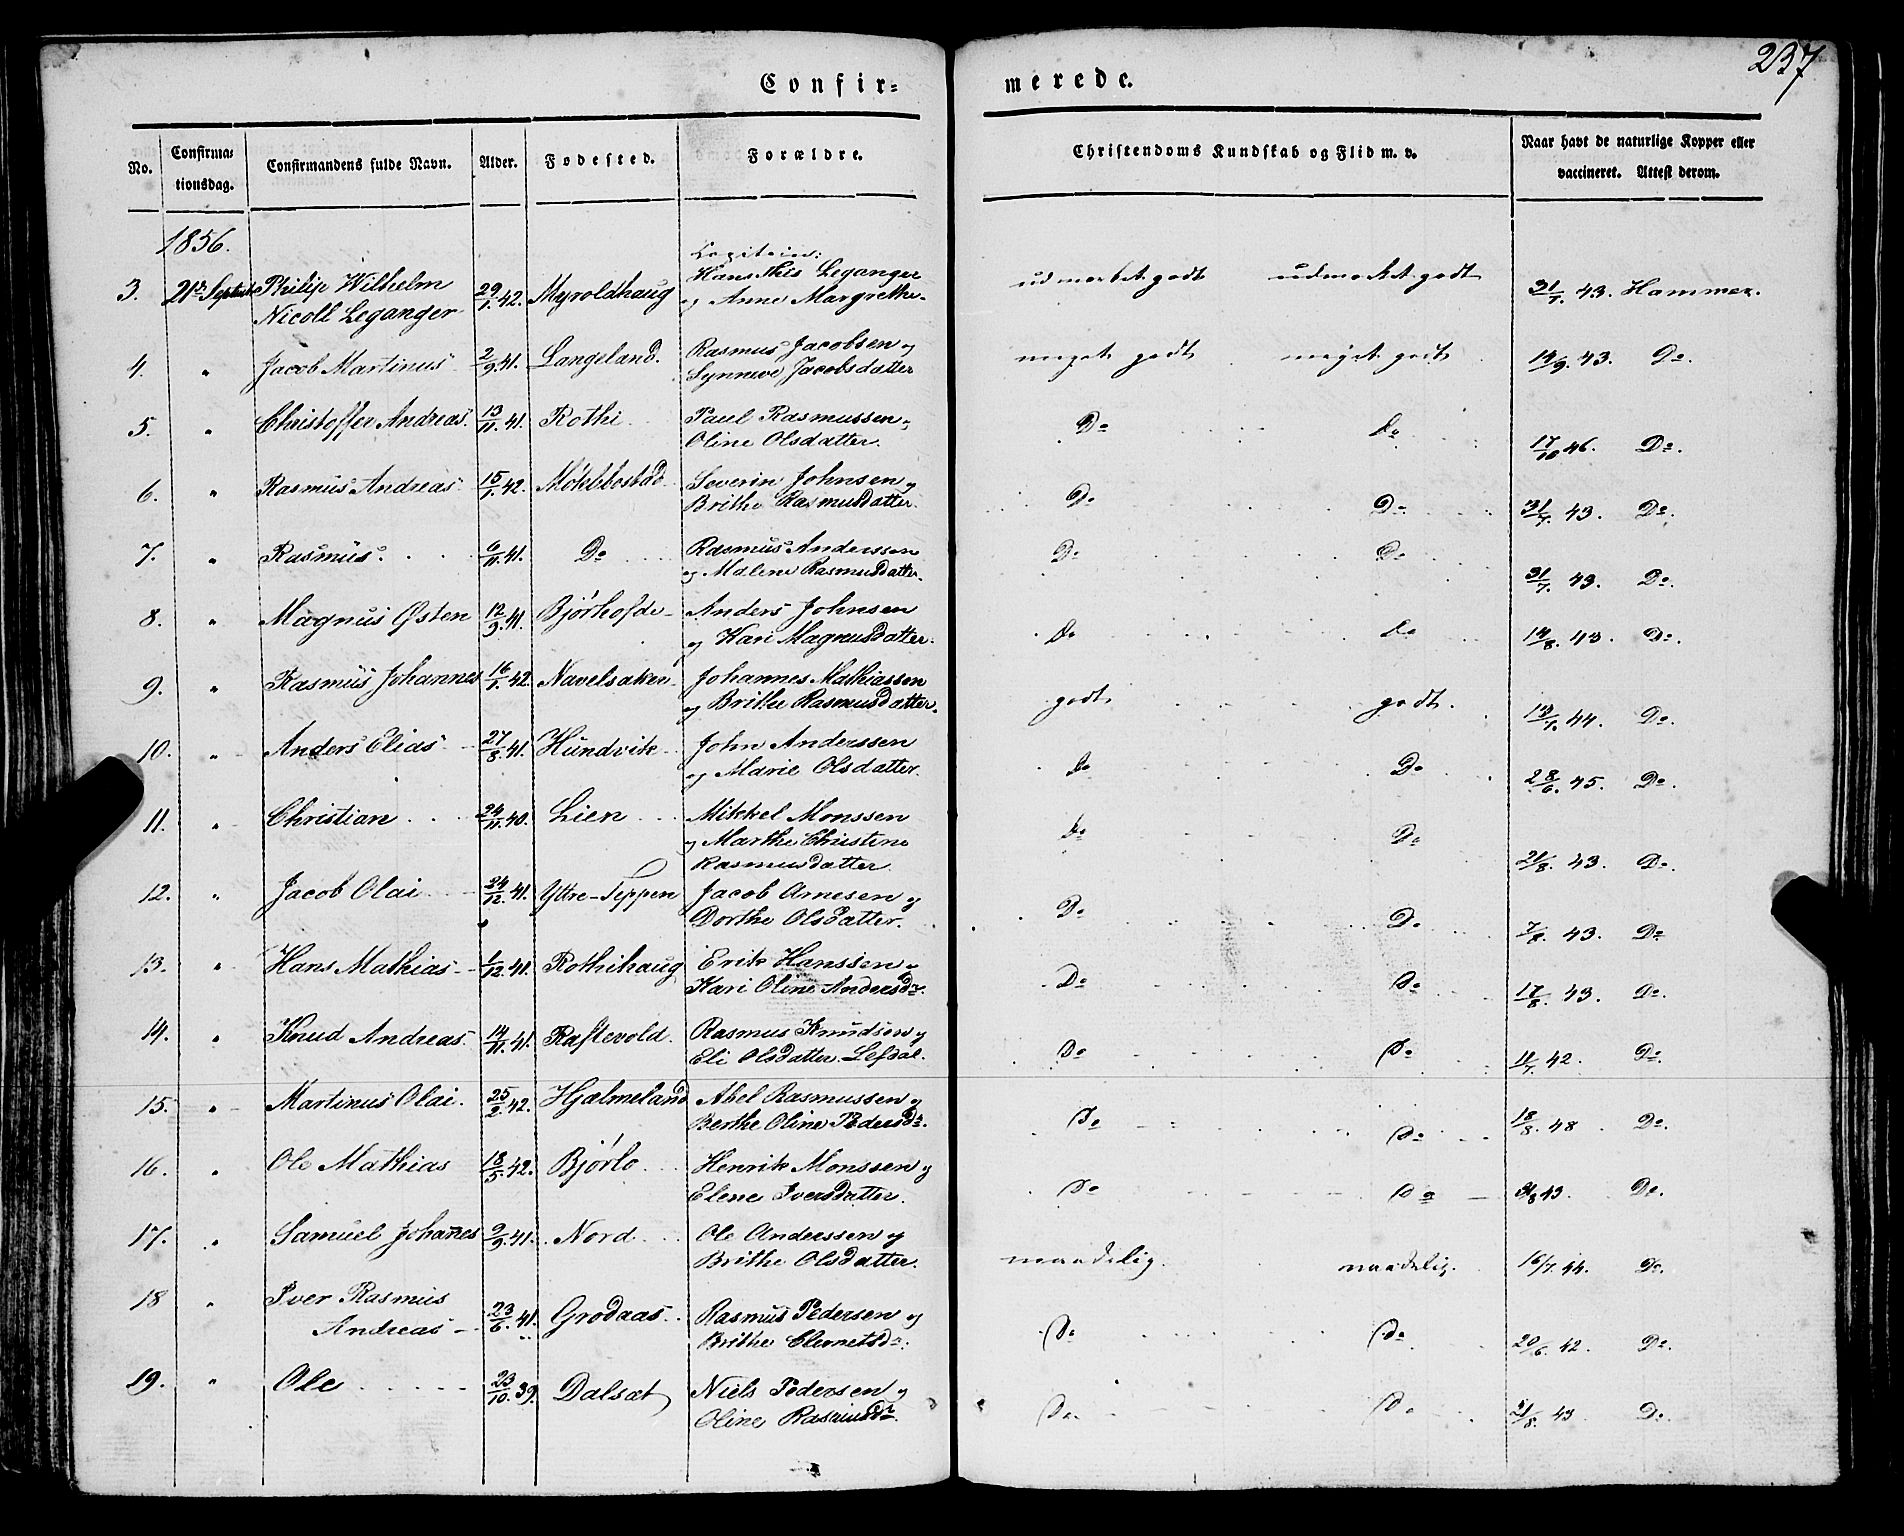 237
Confir- merede.
No. Confirmationsdag. Confirmandens fulde Navn. Alder. Fødested. Forældre. Christendoms Kundskab og Flid m. v. Naar havt de naturlige Kopper eller vaccineret. Attest derom.
1856.
3. 21de Septbr Philip Wilhelm Nicoll Leganger 29/1.42. Myroldhaug Capitain: Hans This Leganger og Anne Margrethe. udmærket godt udmærket godt 31/7.43. Hammer.
4. " Jacob Martinus 2/9.41. Langeland. Rasmus Jacobsen og Synneve Jacobsdatter meget godt meget godt 14/9.43. Do.
5. " Christoffer Andreas. 13/11.41. Rothi Paul Rasmussen og Oline Olsdatter. Do Do 17/10 46. Do.
6. " Rasmus Andreas 15/1.42. Møklebostad Severin Johnsen og Brithe Rasmusdatter. Do Do 31/7.43. Do.
7. " Rasmus. 6/11.41. Do Rasmus Anderssen og Malene Rasmusdatter. Do Do 31/7.43. Do.
8. " Magnus Østen 12/9.41. Bjørhofde Anders Johnsen og Kari Magnusdatter. Do Do 14/8.43. Do.
9. " Rasmus Johannes 16/1.42. Navelsaker Johannes Mathiassen og Brithe Rasmusdatter. godt godt. 44. Do.
10. " Anders Elias 27/8.41. Hundvik John Anderssen og Marie Olsdatter. Do Do 28/6.45. Do.
11. " Christian 24/11.40. Lien Mikkel Monssen og Marthe Christine Rasmusdatter. Do Do 21/8.43. Do.
12. " Jacob Olai 24/12.41. Yttre-Seppen Jacob Arnesen og Dorthe Olsdatter. Do Do. 7/8.43. Do
13. " Hans Mathias 1/12.41. Rothihaug Erik Hanssen og Kari Oline Andersdr. Do Do 17/8.43. Do.
14. " Knud Andreas. 14/11.41. Raftevold. Rasmus Knudsen og Eli Olsdatter Lefdal. Do Do 11/7.42. Do.
15. " Martinus Olai. 25/2.42. Hjelmeland Abel Rasmussen og Berthe Oline Pedersdr. Do Do 18/8.48. Do.
16. " Ole Mathias 18/5.42. Bjørlo Henrik Monssen og Elene Iversdatter. Do Do 43. Do.
17. " Samuel Johanes 9/9.41. Nord Ole Anderssen og Brithe Olsdatter. maadelig. maadelig. 16/7.44. Do.
18 " Iver Rasmus Andreas 23/6.41. Grodaas Rasmus Pedersen og Brithe Clemetsdr. Do Do 20/6.42. Do.
19. " Ole 23/10.39. Dalsæt Niels Pedersen og Oline Rasmusdr. Do Do 21/8.43 Do.